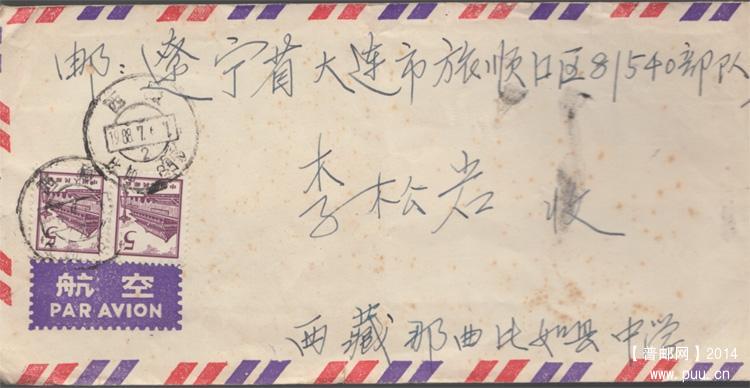 邮：辽宁省大连市旅顺口区81540部队
李松岩 收
西藏那曲比如县中学
1988.7.
2
5
5
航空
PAR AVION
【普邮网】2014
www.puu.cn